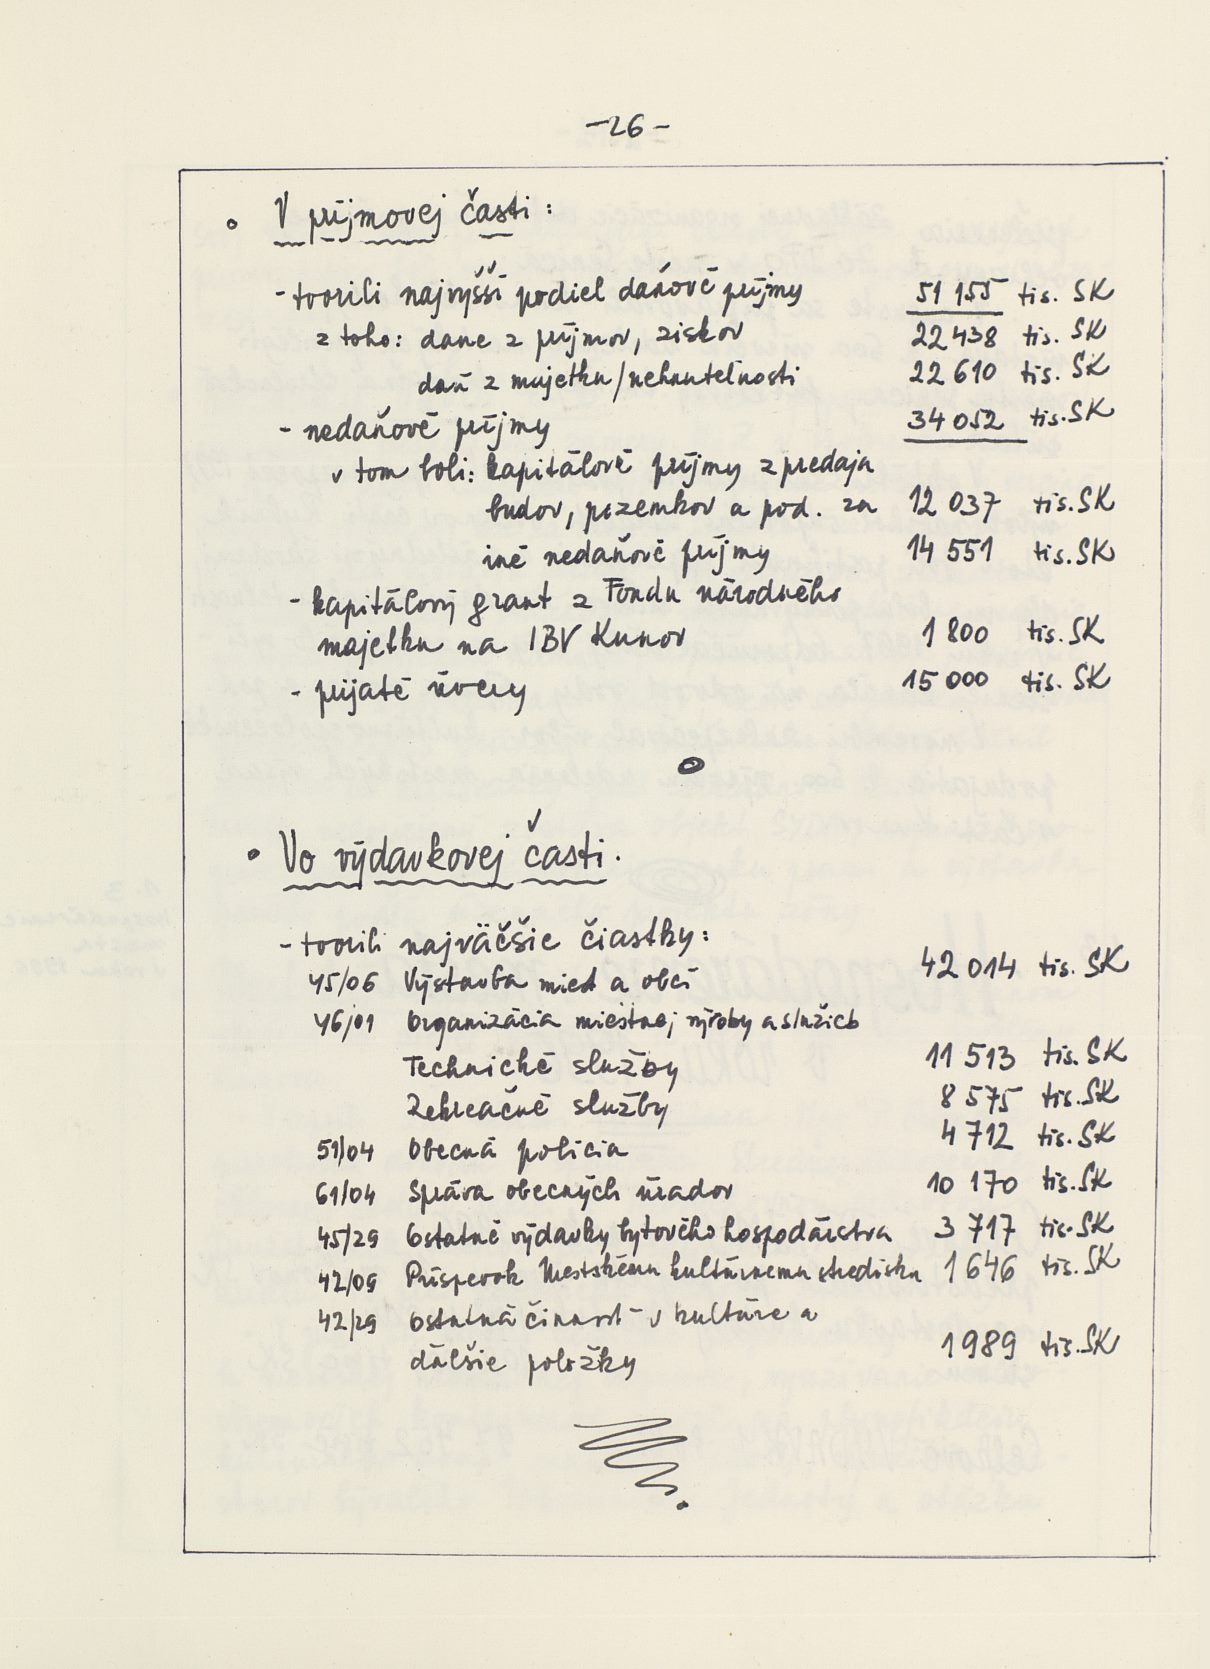 -26-
• V príjmovej časti:
- tvorili najvyšší podiel daňové príjmy 51 155 tis. SK
z toho: dane z príjmov, ziskov 22 438 tis. SK
daň z majetku/nehnuteľnosti 22 610 tis. SK
- nedaňové príjmy 34 052 tis. SK
v tom boli: kapitálové príjmy z predaja
budov, pozemkov a pod. za 12 037 tis. SK
iné nedaňové príjmy 14 551 tis. SK
- kapitálový grant z Fondu národného
majetku na IBV Kunov 1 800 tis. SK
- prijaté úvery 15 000 tis. SK
• Vo výdavkovej časti.
- tvorili najväčšie čiastky:
45/06 Výstavba miest a obcí 42 014 tis. SK
46/01 Organizácia miestnej výroby a služieb
Technické služby 11 513 tis. SK
Rekreačné služby 8 575 tis. SK
51/04 Obecná polícia 4 712 tis. SK
61/04 Správa obecných úradov 10 170 tis. SK
45/29 Ostatné výdavky bytového hospodárstva 3 717 tis. SK
42/09 Príspevok Mestskému kultúrnemu stredisku 1 646 tis. SK
42/29 Ostatná činnosť v kultúre a
ďalšie položky 1 989 tis. SK